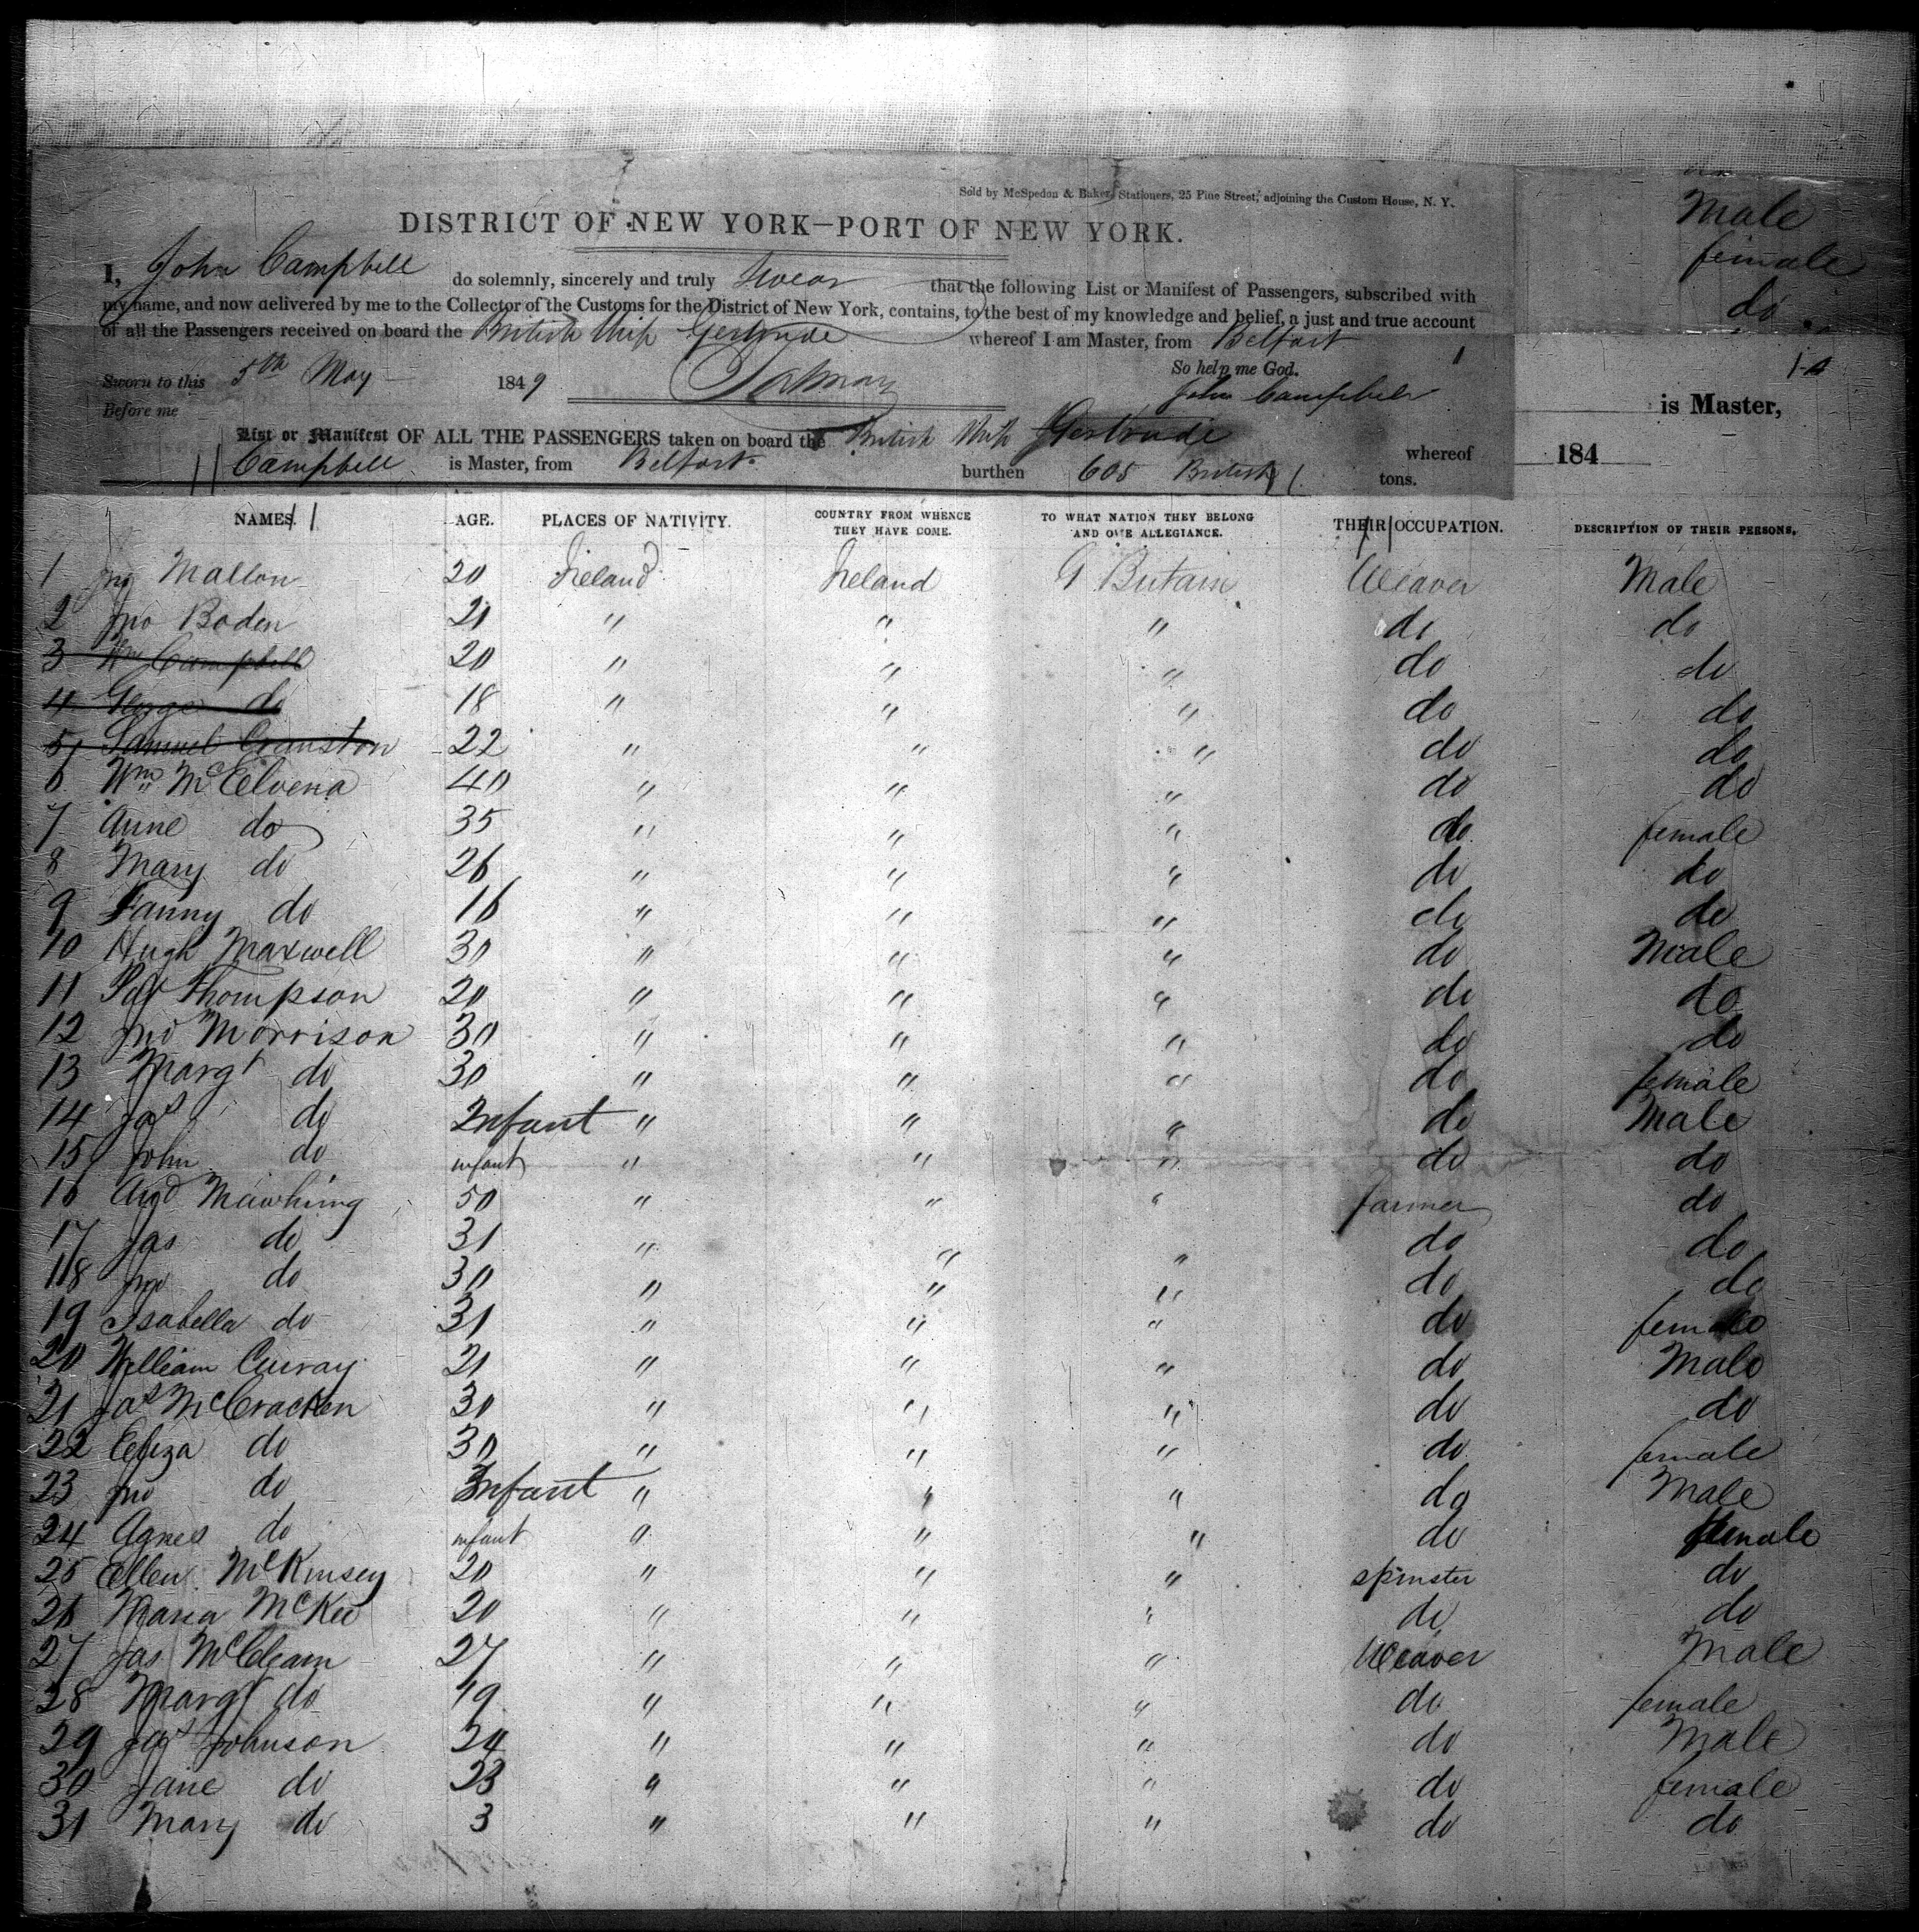 Sold by McSpedon & Baker, Stationers, 25 Pine Street, adjoining the Custom House, N. Y.
DISTRICT OF NEW YORK—PORT OF NEW YORK.
I, John Campbell do solemnly, sincerely and truly swear that the following List or Manifest of Passengers, subscribed with
my name, and now delivered by me to the Collector of the Customs for the District of New York, contains, to the best of my knowledge and belief, a just and true account
of all the Passengers received on board the British Ship Gertrude whereof I am Master, from Belfast
So help me God.
Sworn to this 5th May 1849
John Campbell
Before me
List or Manifest OF ALL THE PASSENGERS taken on board the British Ship Gertrude whereof
Campbell is Master, from Belfast burthen 605 British tons.
Male
female
do
is Master,
184
NAMES. AGE. PLACES OF NATIVITY. COUNTRY FROM WHENCE THEY HAVE COME. TO WHAT NATION THEY BELONG AND OWE ALLEGIANCE. THEIR OCCUPATION. DESCRIPTION OF THEIR PERSONS.
1 Jno Mallon 20 Ireland Ireland G Britain Weaver Male
2 Jno Boden 21 " " " do do
3 Wm Campbell 20 " " " do do
4 George do 18 " " " do do
5 Samuel Cranston 22 " " " do do
6 Wm McElvena 40 " " " do do
7 Anne do 35 " " " do female
8 Mary do 26 " " " do do
9 Fanny do 16 " " " do do
10 Hugh Maxwell 30 " " " do Male
11 Thompson 20 " " " do do
12 Jno Morrison 30 " " " do do
13 Margt do 30 " " " do female
14 Jas do Infant " " " do Male
15 John do infant " " " do do
16 And Mawhing 50 " " " farmer do
17 Jas do 31 " " " do do
18 Jno do 30 " " " do do
19 Isabella do 31 " " " do female
20 William Curray 21 " " " do Male
21 Jas McCracken 30 " " " do do
22 Eliza do 30 " " " do female
23 Jno do Infant " " " do Male
24 Agnes do infant " " " do female
25 Ellen McKinsey 20 " " " spinster do
26 Maria McKee 20 " " " do do
27 Jas McCleam 27 " " " Weaver Male
28 Margt do 19 " " " do female
29 Jas Johnson 24 " " " do Male
30 Jane do 23 " " " do female
31 Mary do 3 " " " do do